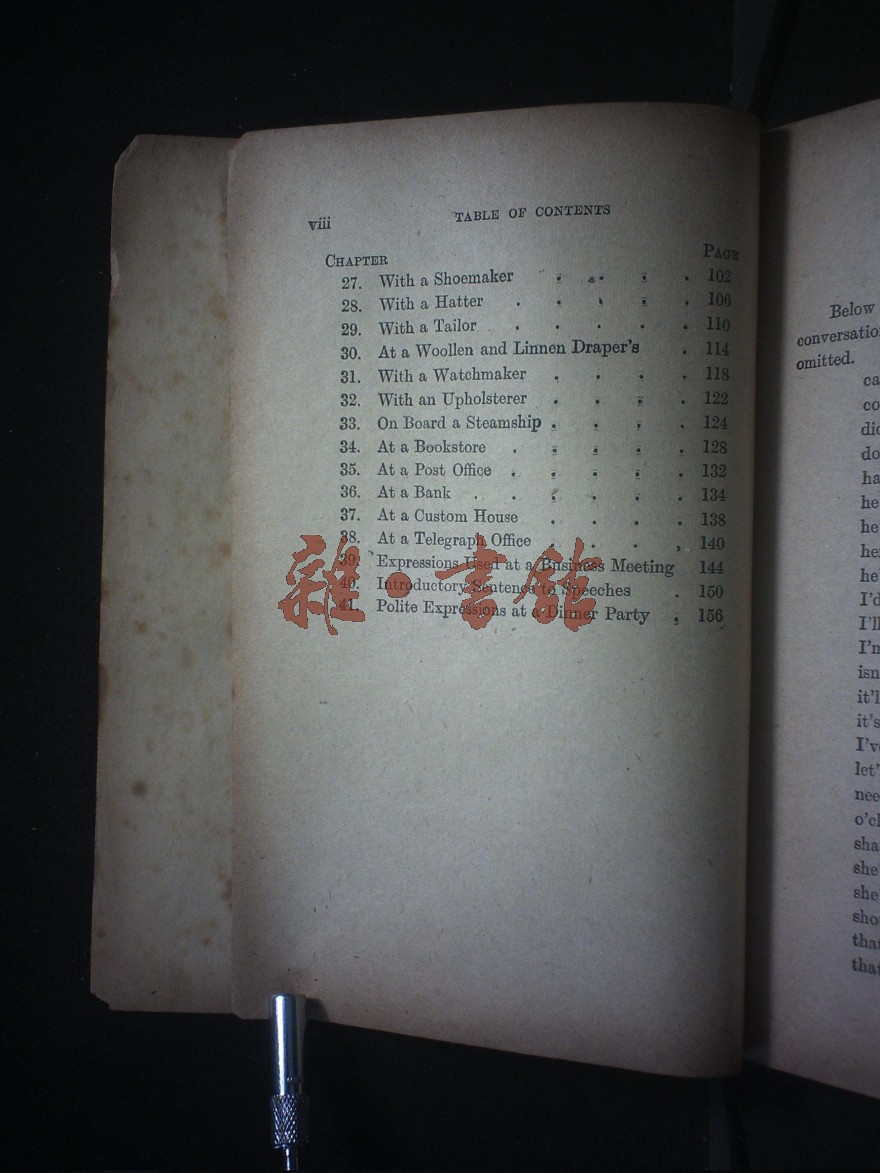 viii
TABLE OF CONTENTS
CHAPTER PAGE
27. With a Shoemaker . . . . 102
28. With a Hatter . . . . . 106
29. With a Tailor . . . . . 110
30. At a Woollen and Linnen Draper's . 114
31. With a Watchmaker . . . . 118
32. With an Upholsterer . . . . 122
33. On Board a Steamship . . . . 124
34. At a Bookstore . . . . . 128
35. At a Post Office . . . . . 132
36. At a Bank . . . . . . 134
37. At a Custom House . . . . 138
38. At a Telegraph Office . . . . 140
39. Expressions Used at a Business Meeting 144
40. Introductory Sentence to Speeches . 150
41. Polite Expressions at a Dinner Party . 156
雜·書館
Below
conversatio
omitted.
ca
co
did
do
ha
he
he
he
he'
I'd
I'll
I'm
isn
it'l
it's
I've
let'
nee
o'cl
sha
she'
she'
sho
that
that